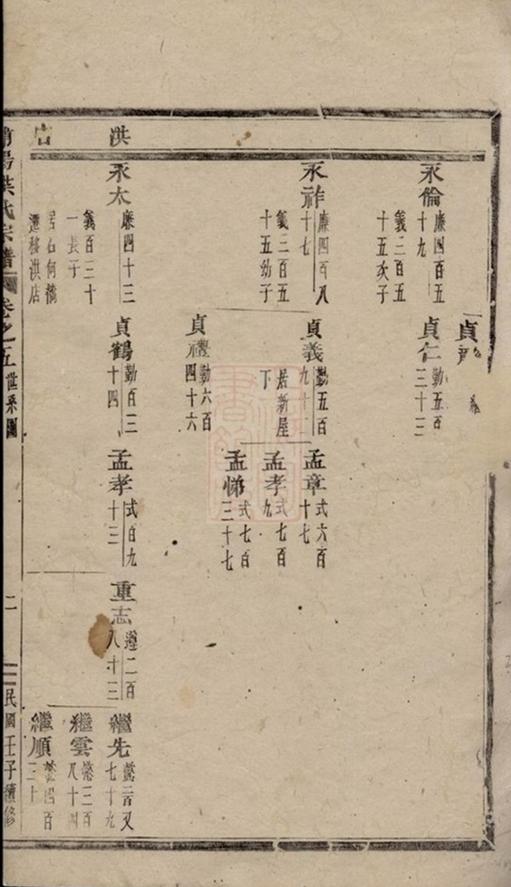 洪店
永倫
廉四百五
十九
義三百五
十五次子
永祚
廉四百八
十七
義三百五
十五幼子
永太
廉四十三
義百二十
一長子
居石何橋
遷移洪店
貞
貞仁
勤五百
三十三
貞義
勤五百
九十
居新屋
下
貞禮
勤六百
四十六
貞鶴
勤百三
十四
孟章
式六百
十七
孟孝
式七百
九
孟悌
式七百
三十七
孟孝
式百九
十三
重志
遵二百
八十三
繼先
七十九
繼雲
三百
八十四
繼順
四百
三十
氏宗譜
卷之五
世系圖
二
民國壬子續修